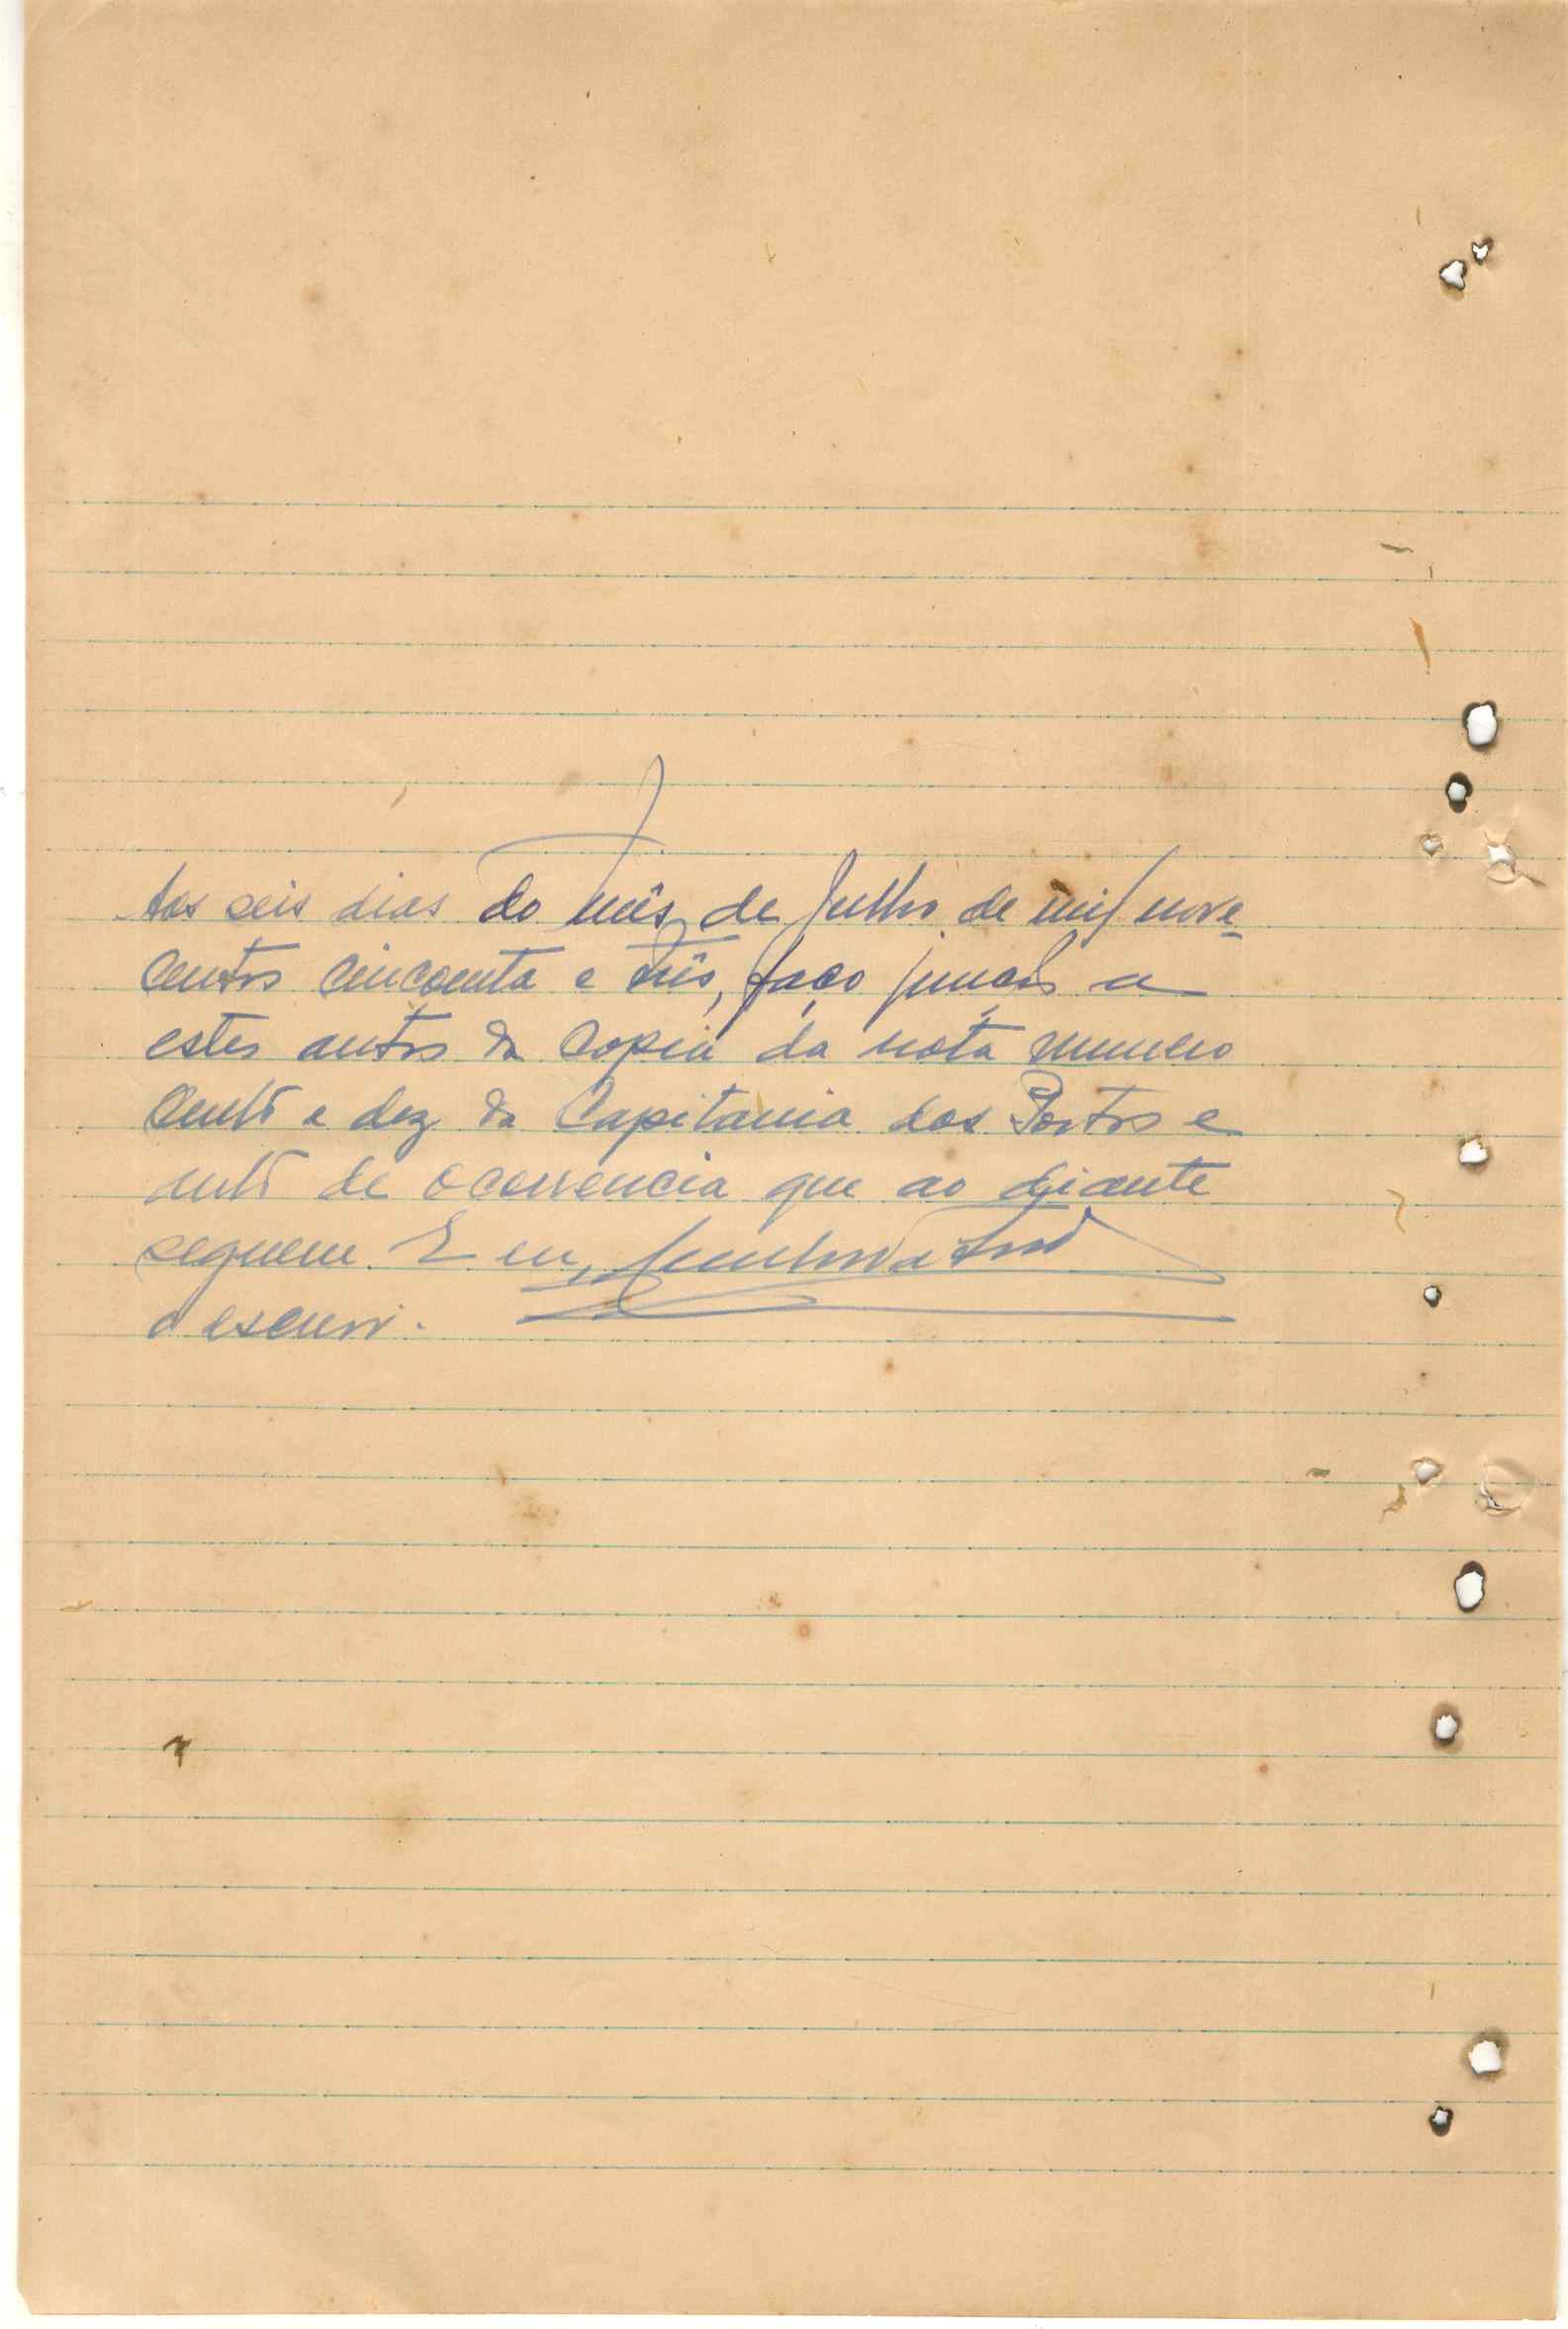 Aos seis dias do mês de Julho de mil nove
centos cincoenta e três, faço junção a
estes autos da copia da nota numero
cento e dez da Capitania dos Portos e
auto de ocorrencia que ao diante
seguem. E eu,
o escrevi.